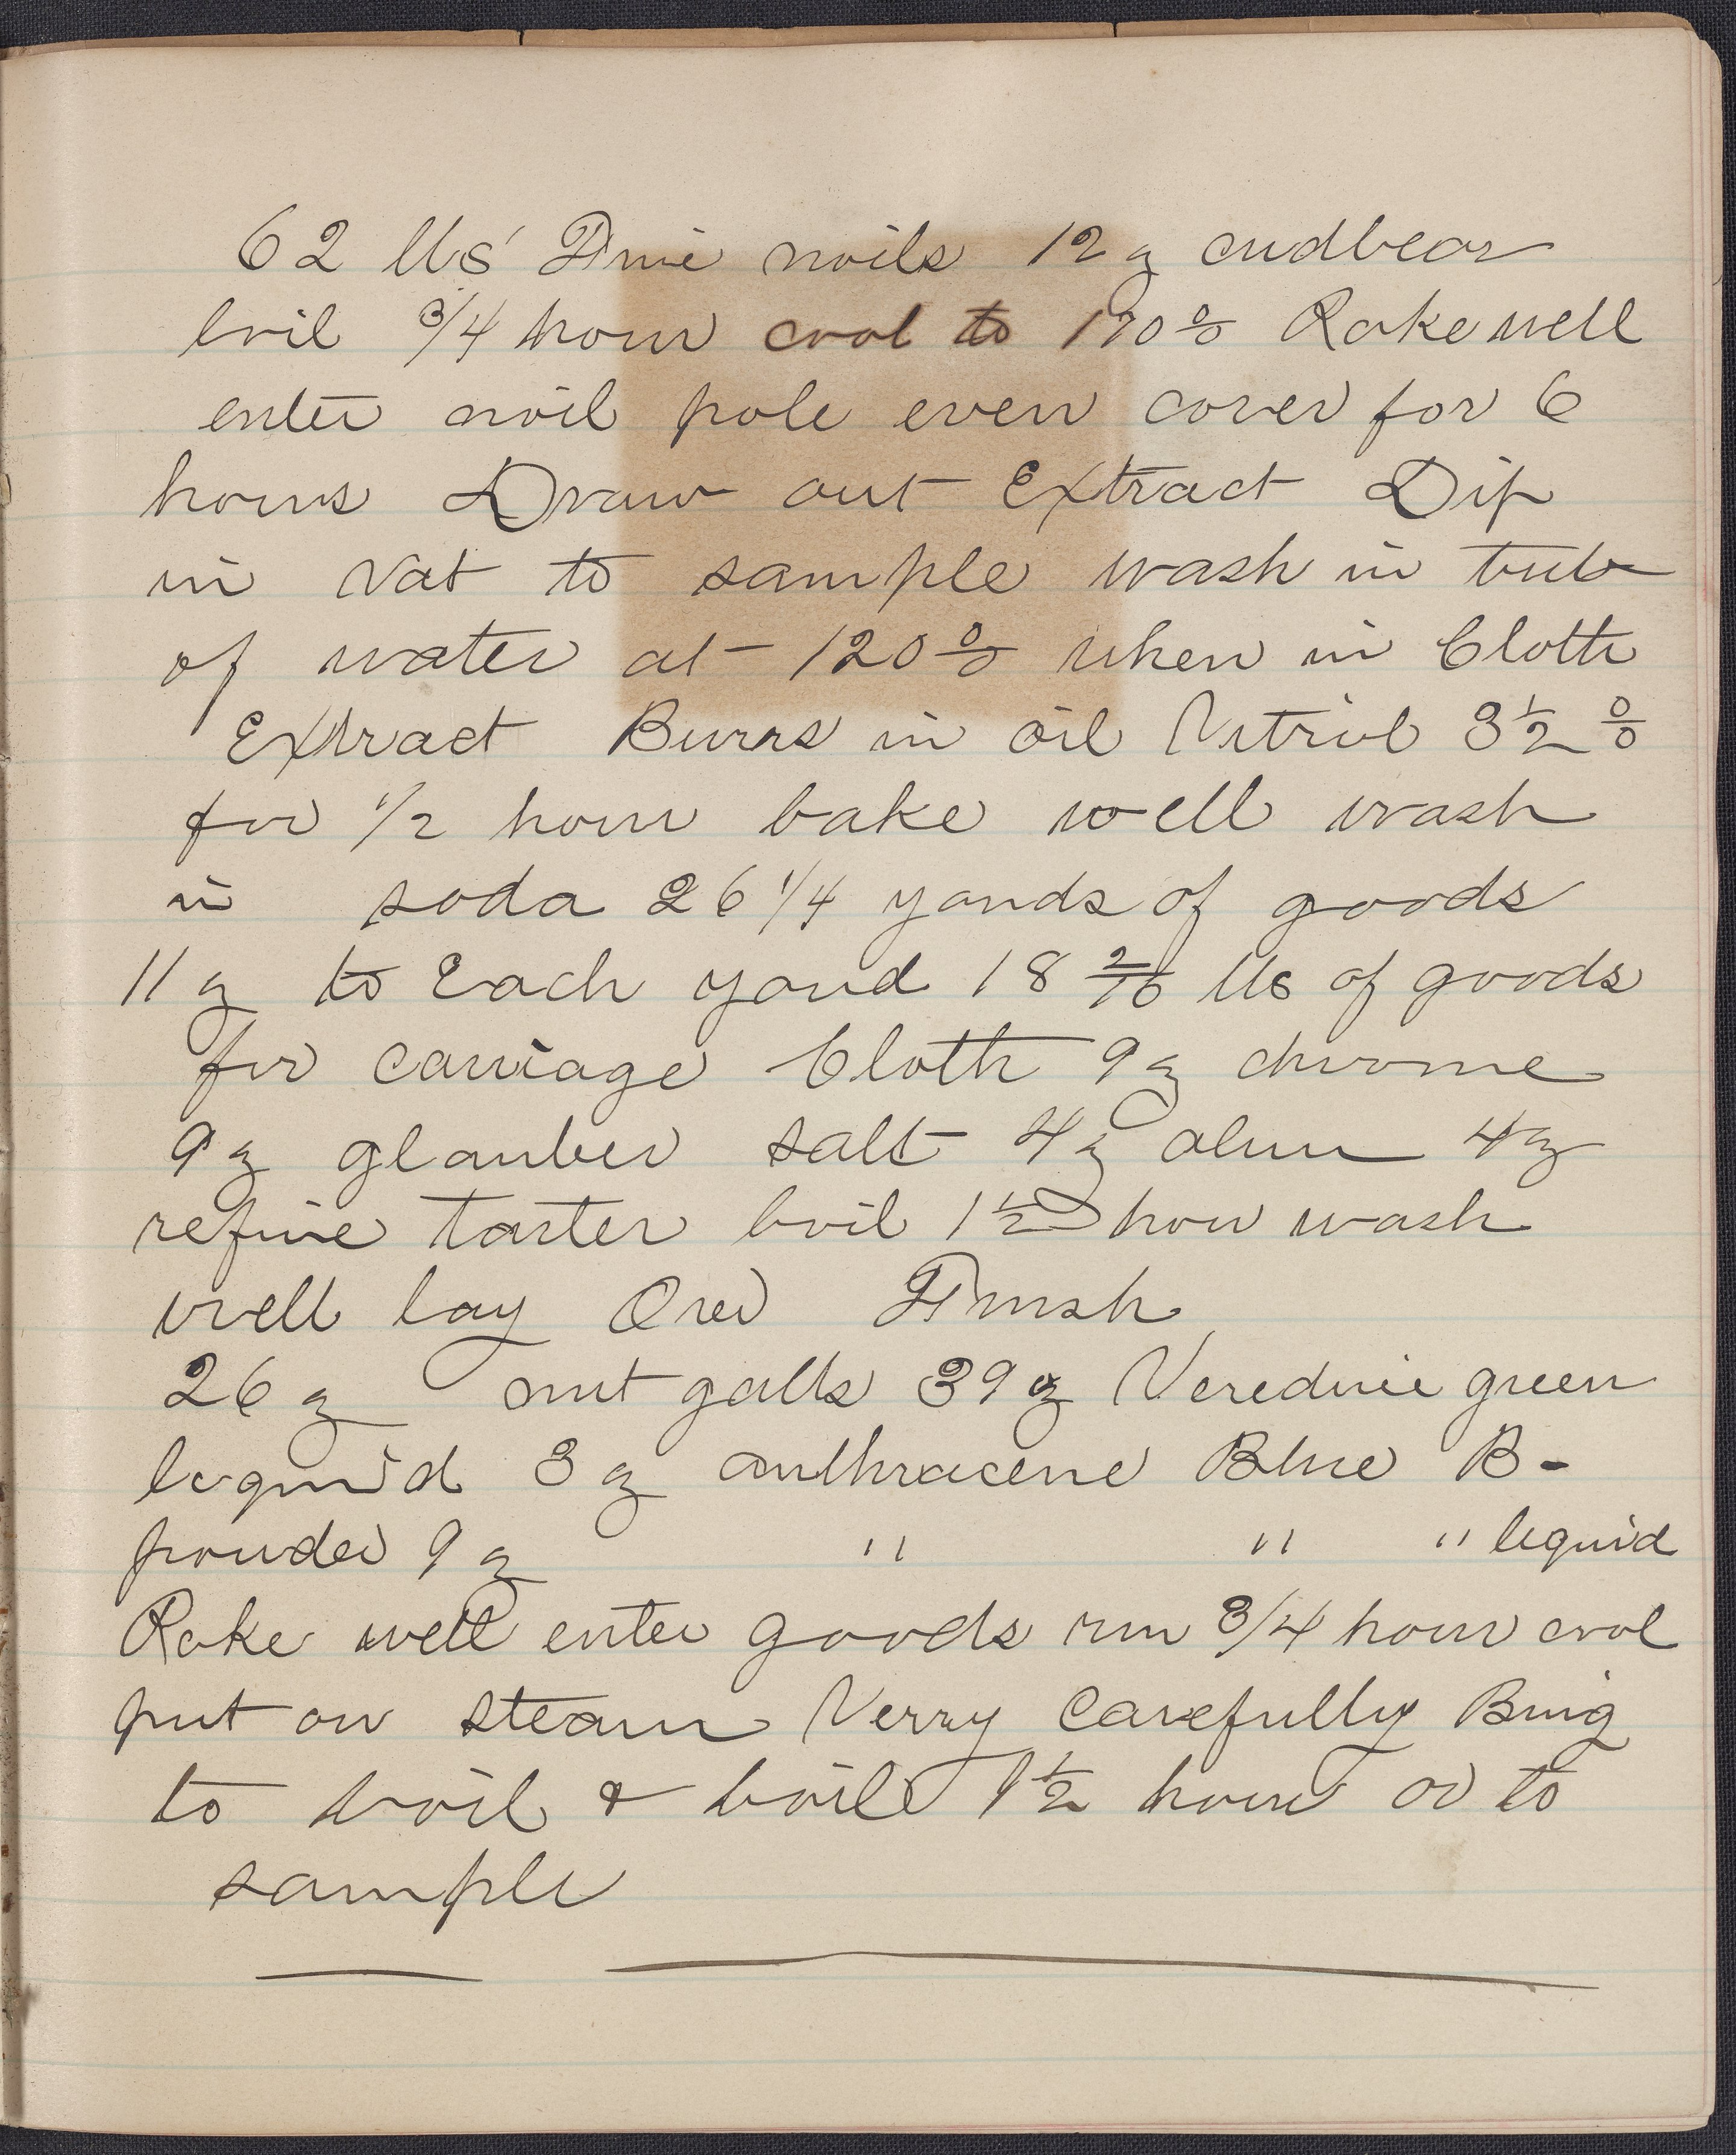 62 lbs Fine noils 12 ℥ cudbear
boil 3/4 hour cool to 170 % Rake well
enter noil pole even cover for 6
hours Draw out Extract Dip
in Vat to sample wash in tub
of water at 120 % when in Cloth
Extract Burrs in oil Vitriol 3 1/2 %
for 1/2 hour bake well wash
in soda 26 1/4 yards of goods
11 ℥ to Each yard 18 2/16 lbs of goods
for carriage Cloth 9 ℥ chrome
9 ℥ glauber salt 4 ℥ alum 4 ℥
refine tarter boil 1 1/2 hour wash
well lay Over Finish
26 ℥ nut galls 39 ℥ Veredine green
lequid 3 ℥ anthracene Blue B-
powder 9 ℥ " " " lequid
Rake well enter goods run 3/4 hour cool
put on steam Verry carefully Bring
to boil & boil 1 1/2 hour or to
sample